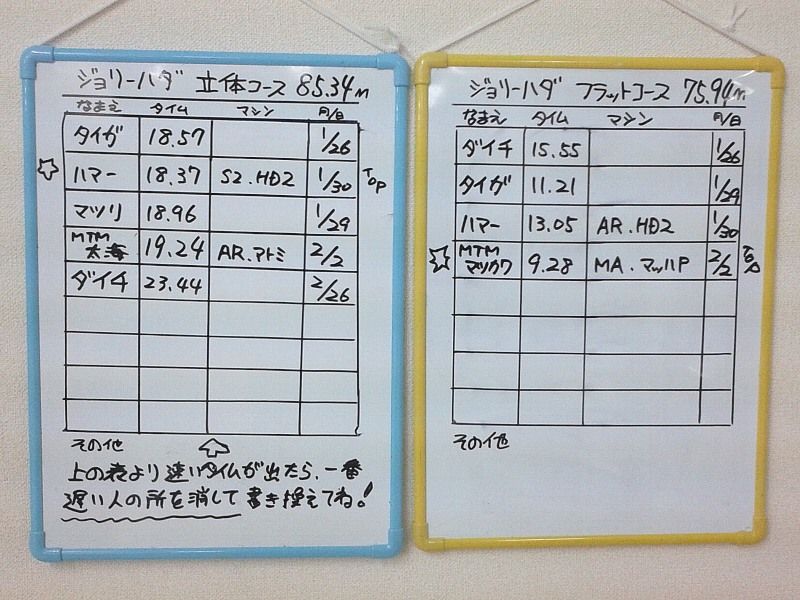 ジョリーハダ 立体コース 85.34m
なまえ タイム マシン 月/日
タイガ 18.57 1/26
ハマー 18.37 S2.HD2 1/30 TOP
マツリ 18.96 1/29
MTM
太海 19.24 AR.マトミ 2/2
ダイチ 23.44 2/26
その他
上の表より速いタイムが出たら、一番
遅い人の所を消して書き換えてね!
ジョリーハダ フラットコース 75.94m
なまえ タイム マシン 月/日
ダイチ 15.55 1/26
タイガ 11.21 1/29
ハマー 13.05 AR.HD2 1/30
MTM
マツカワ 9.28 MA.マッハP 2/2 TOP
その他